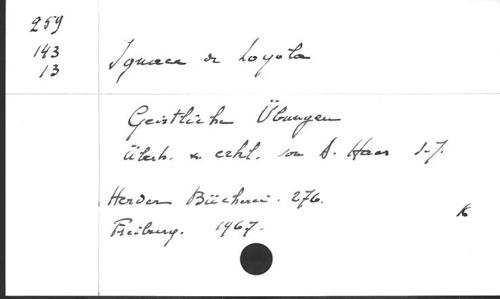 259
143
13
Ignace de Loyola
Geistliche Übungen
Übers. u. erkl. von A. Haas S.J.
Herder Bücherei. 276.
Freiburg. 1967.
K